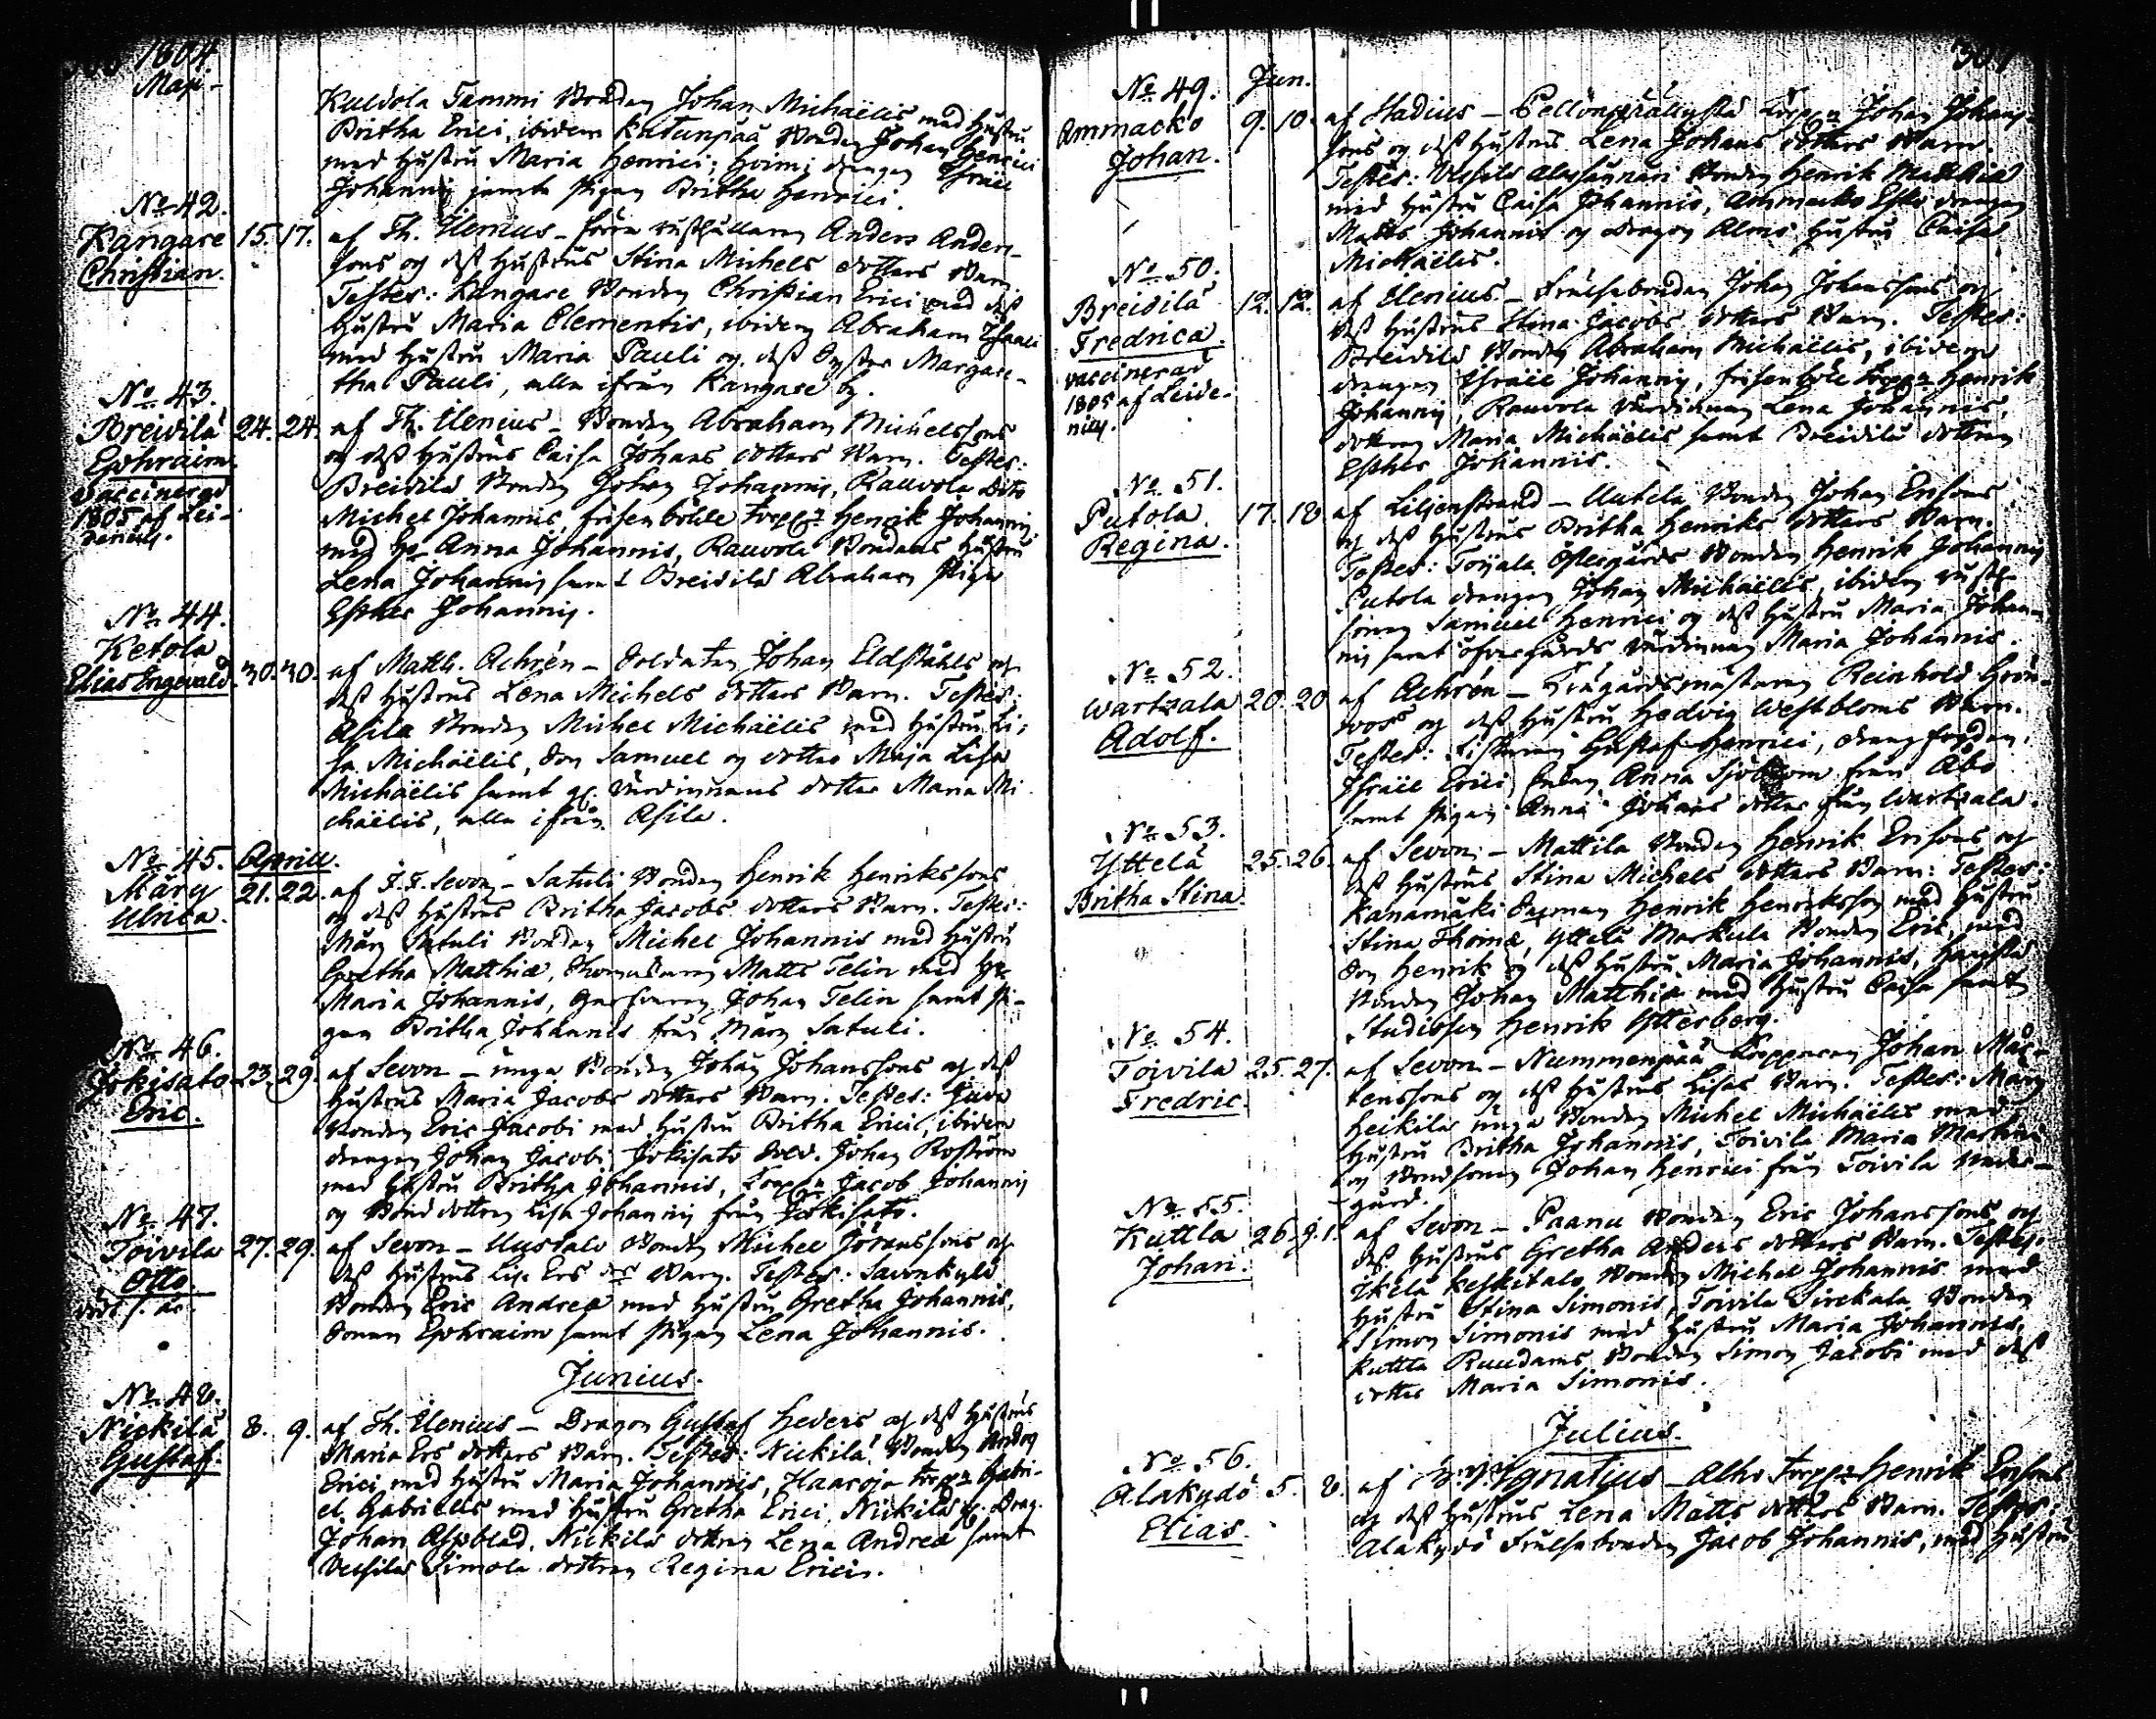 1804.
Maji
Kuldola Tammi Bonden Johan Michaëlis med hustru
Britha Erici, ibidem Katunpää Bonden Johan Henrici
med hustru Maria Henrici; drengen Israël
Johannis jemte pigan Britha Henrici.
No 42.
Kangare 15. 17. af Th. Elenius - Anders Anders-
Christian. sons og dess hustrus Stina Michels dotters Barn.
Testes: Kangare Bonden Christian Erici med dess
hustru Maria Clementis, ibidem Abraham Isaaci
med hustru Maria Pauli og dess Syster Margare-
tha Pauli, alla ifrån Kangare by.
No 43.
Breidilä 24. 24. af Th. Elenius - Bonden Abraham Michelssons
Ephraim. og dess hustrus Caisa Johans dotters Barn. Testes:
vaccinerad Breidilä Bonden Johan Johannis, Rauvola Dito
1805 af Lei- Michel Johannis, frisenböle Torp. Henrik Johannis
denius. med H. Anna Johannis, Rauvola Bondens hustru
Lena Johannis samt Breidilä Abraham piga
Esther Johannis.
No 44.
Ketola
Elias Ingevald. 30. 30. af Matth. Achrén - Soldaten Johan Eldståhls og
dess hustrus Lena Michels dotters Barn. Testes:
Asila Bonden Michel Michaëlis med hustru Li-
sa Michaëlis, Son Samuel og dotter Maja Lisa
Michaëlis samt gl. värdinnans dotter Maria Mi-
chaëlis, alla ifrån Asila.
No 45. Aprill.
Märy 21. 22. af J. F. Sevon - Satuli Bonden Henrik Henrikssons
Ulrica. og dess hustrus Britha Jacobs dotters Barn. Testes:
Märy Satuli Bonden Michel Johannis med hustru
Gretha Matthiæ, Matts Telin med H.
Maria Johannis, Johan Telin samt pi-
gan Britha Johannis från Märy Satuli.
No 46.
Jokisato 23. 29. af Sevon - unga Bonden Johan Johanssons og dess
Eric. hustrus Maria Jacobs dotters Barn. Testes:
Bonden Eric Jacobi med hustru Britha Erici, ibidem
drengen Johan Jacobi, Jokisato Sold. Johan Roström
med hustru Britha Johannis, Torp. Jacob Johannis
og Bond dottren Lisa Johannis från Jokisato.
No 47.
Toivila 27. 29. af Sevon - Uustalo Bonden Michel Jöranssons og
Otto. dess hustrus Lis. Ers drs Barn. Testes: Savonkylä
död s. år. Bonden Eric Andreæ med hustru Gretha Johannis,
Sonen Ephraim samt pigan Lena Johannis.
Junius.
No 48.
Nickilä 8. 9. af Th. Elenius - Dragon Gustaf Heders og dess hustrus
Gustaf. Maria Ers dotters Barn. Testes: Nickilä Bonden
Erici med hustru Maria Johannis, Haaroja Torp. Gabri-
el Gabrielis med hustru Gretha Erici, Nickilä gl. Drag.
Johan Aspblad, Nickilä dottren Lena Andreæ samt
Vessilä Simola dottren Regina Erici.
No 49. Jun.
Ammacko 9. 10. af Stadius - Torp. Johan Johans-
Johan. sons og dess hustrus Lena Johans dotters Barn.
Testes: Bonden Henrik Matthiæ
med hustru Caisa Johannis, Ammacko Esko drengen
Matts Johannis og dragon Alms hustru Caisa
Michaëlis.
No 50.
Breidilä 12. 12. af Elenius - Frälsebonden Johan Johanssons og
Fredrica. dess hustrus Stina Jacobs dotters Barn. Testes:
vaccinerad Breidilä Bonden Abraham Michaëlis, ibidem
1805 af Leide- drengen Israël Johannis, frisenböle Torp. Henrik
nius. Johannis, Rauvola värdinnan Lena Johannis,
dottren Maria Michaëlis samt Breidilä dottren
Esther Johannis.
No 51.
Putola 17. 18 af Liljenstrand - Uutela Bonden Johan Ersons
Regina. og dess hustrus Britha Henriks dotters Barn.
Testes: Toijala Östergårds Bonden Henrik Johannis
Putola drengen Johan Michaëlis, ibidem
Samuel Henrici og dess hustru Maria Johan-
nis samt öfvergårds värdinnan Maria Johannis.
No 52.
Wartsala 20. 20 af Achrén - Trägårdsmästaren Reinhold Grön-
Adolf. roos og dess hustru Hedvig Westbloms Barn.
Testes: Gustaf Henrici, drengfogden
Israël Erici, Anna Sjöblom från Åbo
samt pigan Anna Johans dotter från Wartsala.
No 53.
Yttelä 25. 26. af Sevon - Mattila Bonden Henrik Ersons og
Britha Stina dess hustrus Stina Michels dotters Barn: Testes:
Kanamäki Henrik Henriksson med hustru
Stina Thomæ, Yttelä Markula Bonden Eric, med
Son Henrik og dess hustru Maria Johannis,
Bonden Johan Matthiæ med hustru Caisa samt
Henrik Ytterberg.
No 54.
Toivila 25. 27. af Sevon - Nummenpää Torpparen Johan Mår-
Fredric. tenssons og dess hustrus Lisas Barn. Testes: Märy
Heikilä unga Bonden Michel Michaëlis med
hustru Britha Johannis, Toivila Maria Martini
og Bondsonen Johan Henrici från Toivila Neder-
gård.
No 55.
Kuttla 26. af Sevon - Paanu Bonden Eric Johanssons og
Johan. dess hustrus Gretha Anders dotters Barn. Testes:
Ikelä Keskitalo Bonden Michel Johannis med
hustru Stina Simonis, Toivila Sirckala Bonden
Simon Simonis med hustru Maria Johannis,
Kuttla Bonden Simon Jacobi med dess
dotter Maria Simonis.
Julius.
No 56.
Alakydö 5. 8. af Ignatius - Alho Torp. Henrik Ersons
Elias. og dess hustrus Lena Matts dotters Barn. Testes:
Alakydö Frälsebonden Jacob Johannis, med hustru